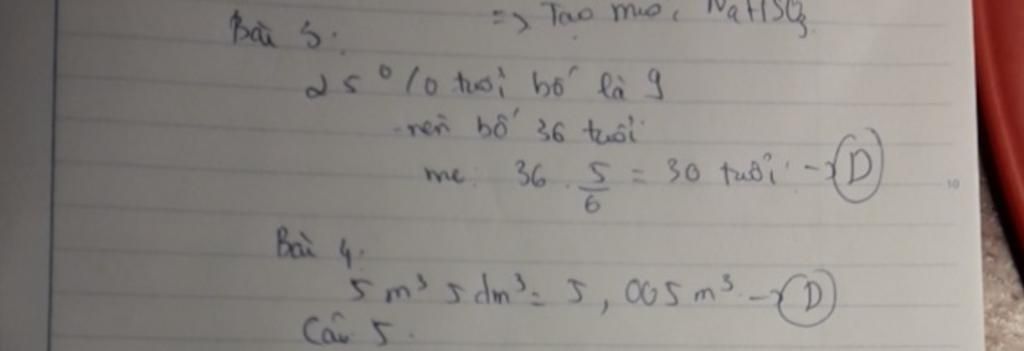 => Tạo muối NaHSO3
Bài 3:
25% tuổi bố là 9
nên bố 36 tuổi
mẹ: 36 . 5/6 = 30 tuổi → D
10
Bài 4:
5 m³ 5 dm³ = 5,005 m³ → D
Câu 5.